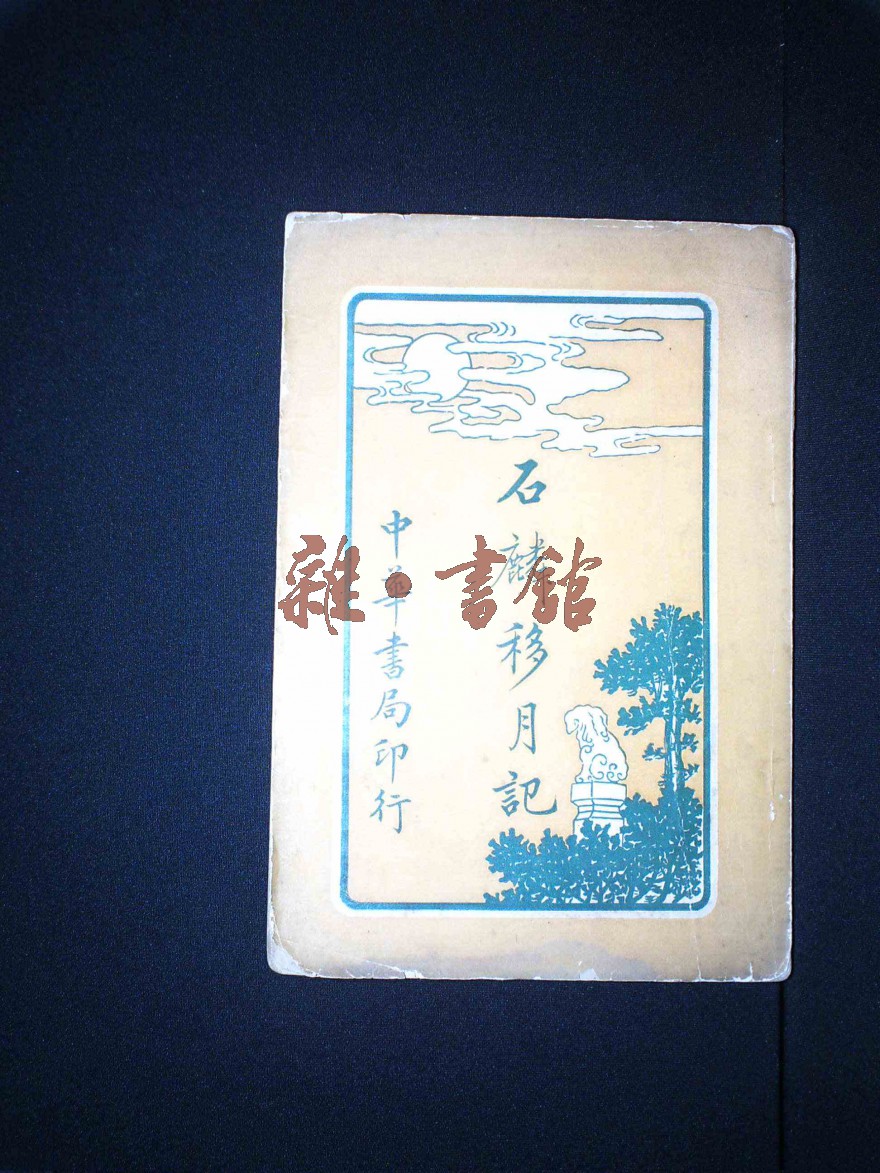 石麟移月記
中華書局印行
雜·書館